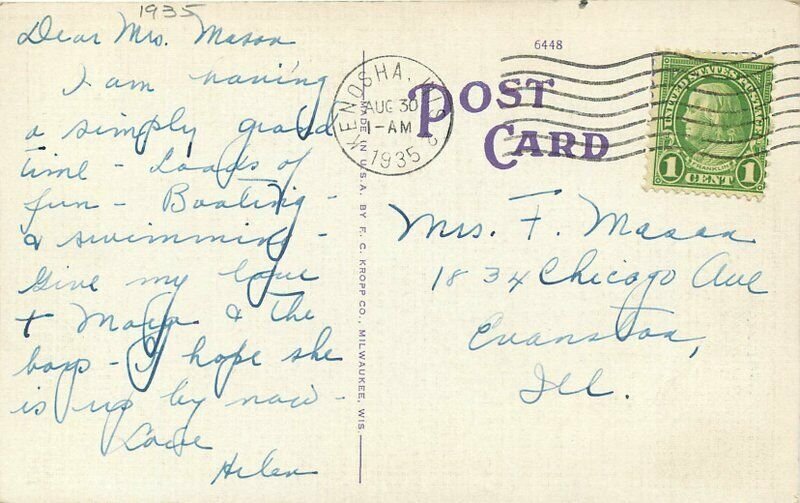 1935
Dear Mrs. Mason
I am having
a simply grand
time - Loads of
fun - Boating -
& swimming -
Give my love
+ & the
boys - I hope she
is up by now -
Love
Helen
MADE IN U.S.A. BY E. C. KROPP CO., MILWAUKEE, WIS.
KENOSHA, WIS
AUG 30
1-AM
1935
6448
POST
CARD
UNITED STATES POSTAGE
FRANKLIN
1 CENT 1
Mrs. F. Mason
1834 Chicago Ave
Evanston,
Ill.